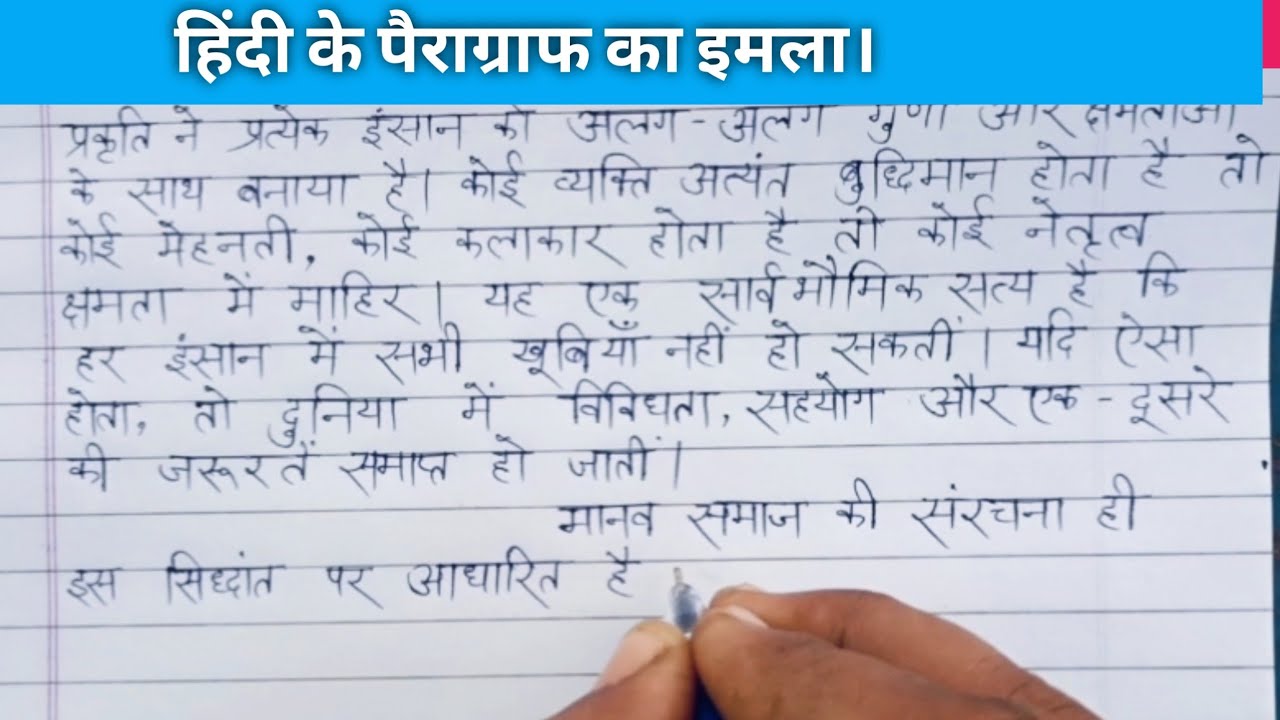 हिंदी के पैराग्राफ का इमला।
प्रकृति ने प्रत्येक इंसान को अलग-अलग गुणों और क्षमताओं
के साथ बनाया है। कोई व्यक्ति अत्यंत बुद्धिमान होता है तो
कोई मेहनती, कोई कलाकार होता है तो कोई नेतृत्व
क्षमता में माहिर। यह एक सार्वभौमिक सत्य है कि
हर इंसान में सभी खूबियाँ नहीं हो सकतीं। यदि ऐसा
होता, तो दुनिया में विविधता, सहयोग और एक-दूसरे
की जरूरतें समाप्त हो जातीं।
मानव समाज की संरचना ही
इस सिध्दांत पर आधारित है